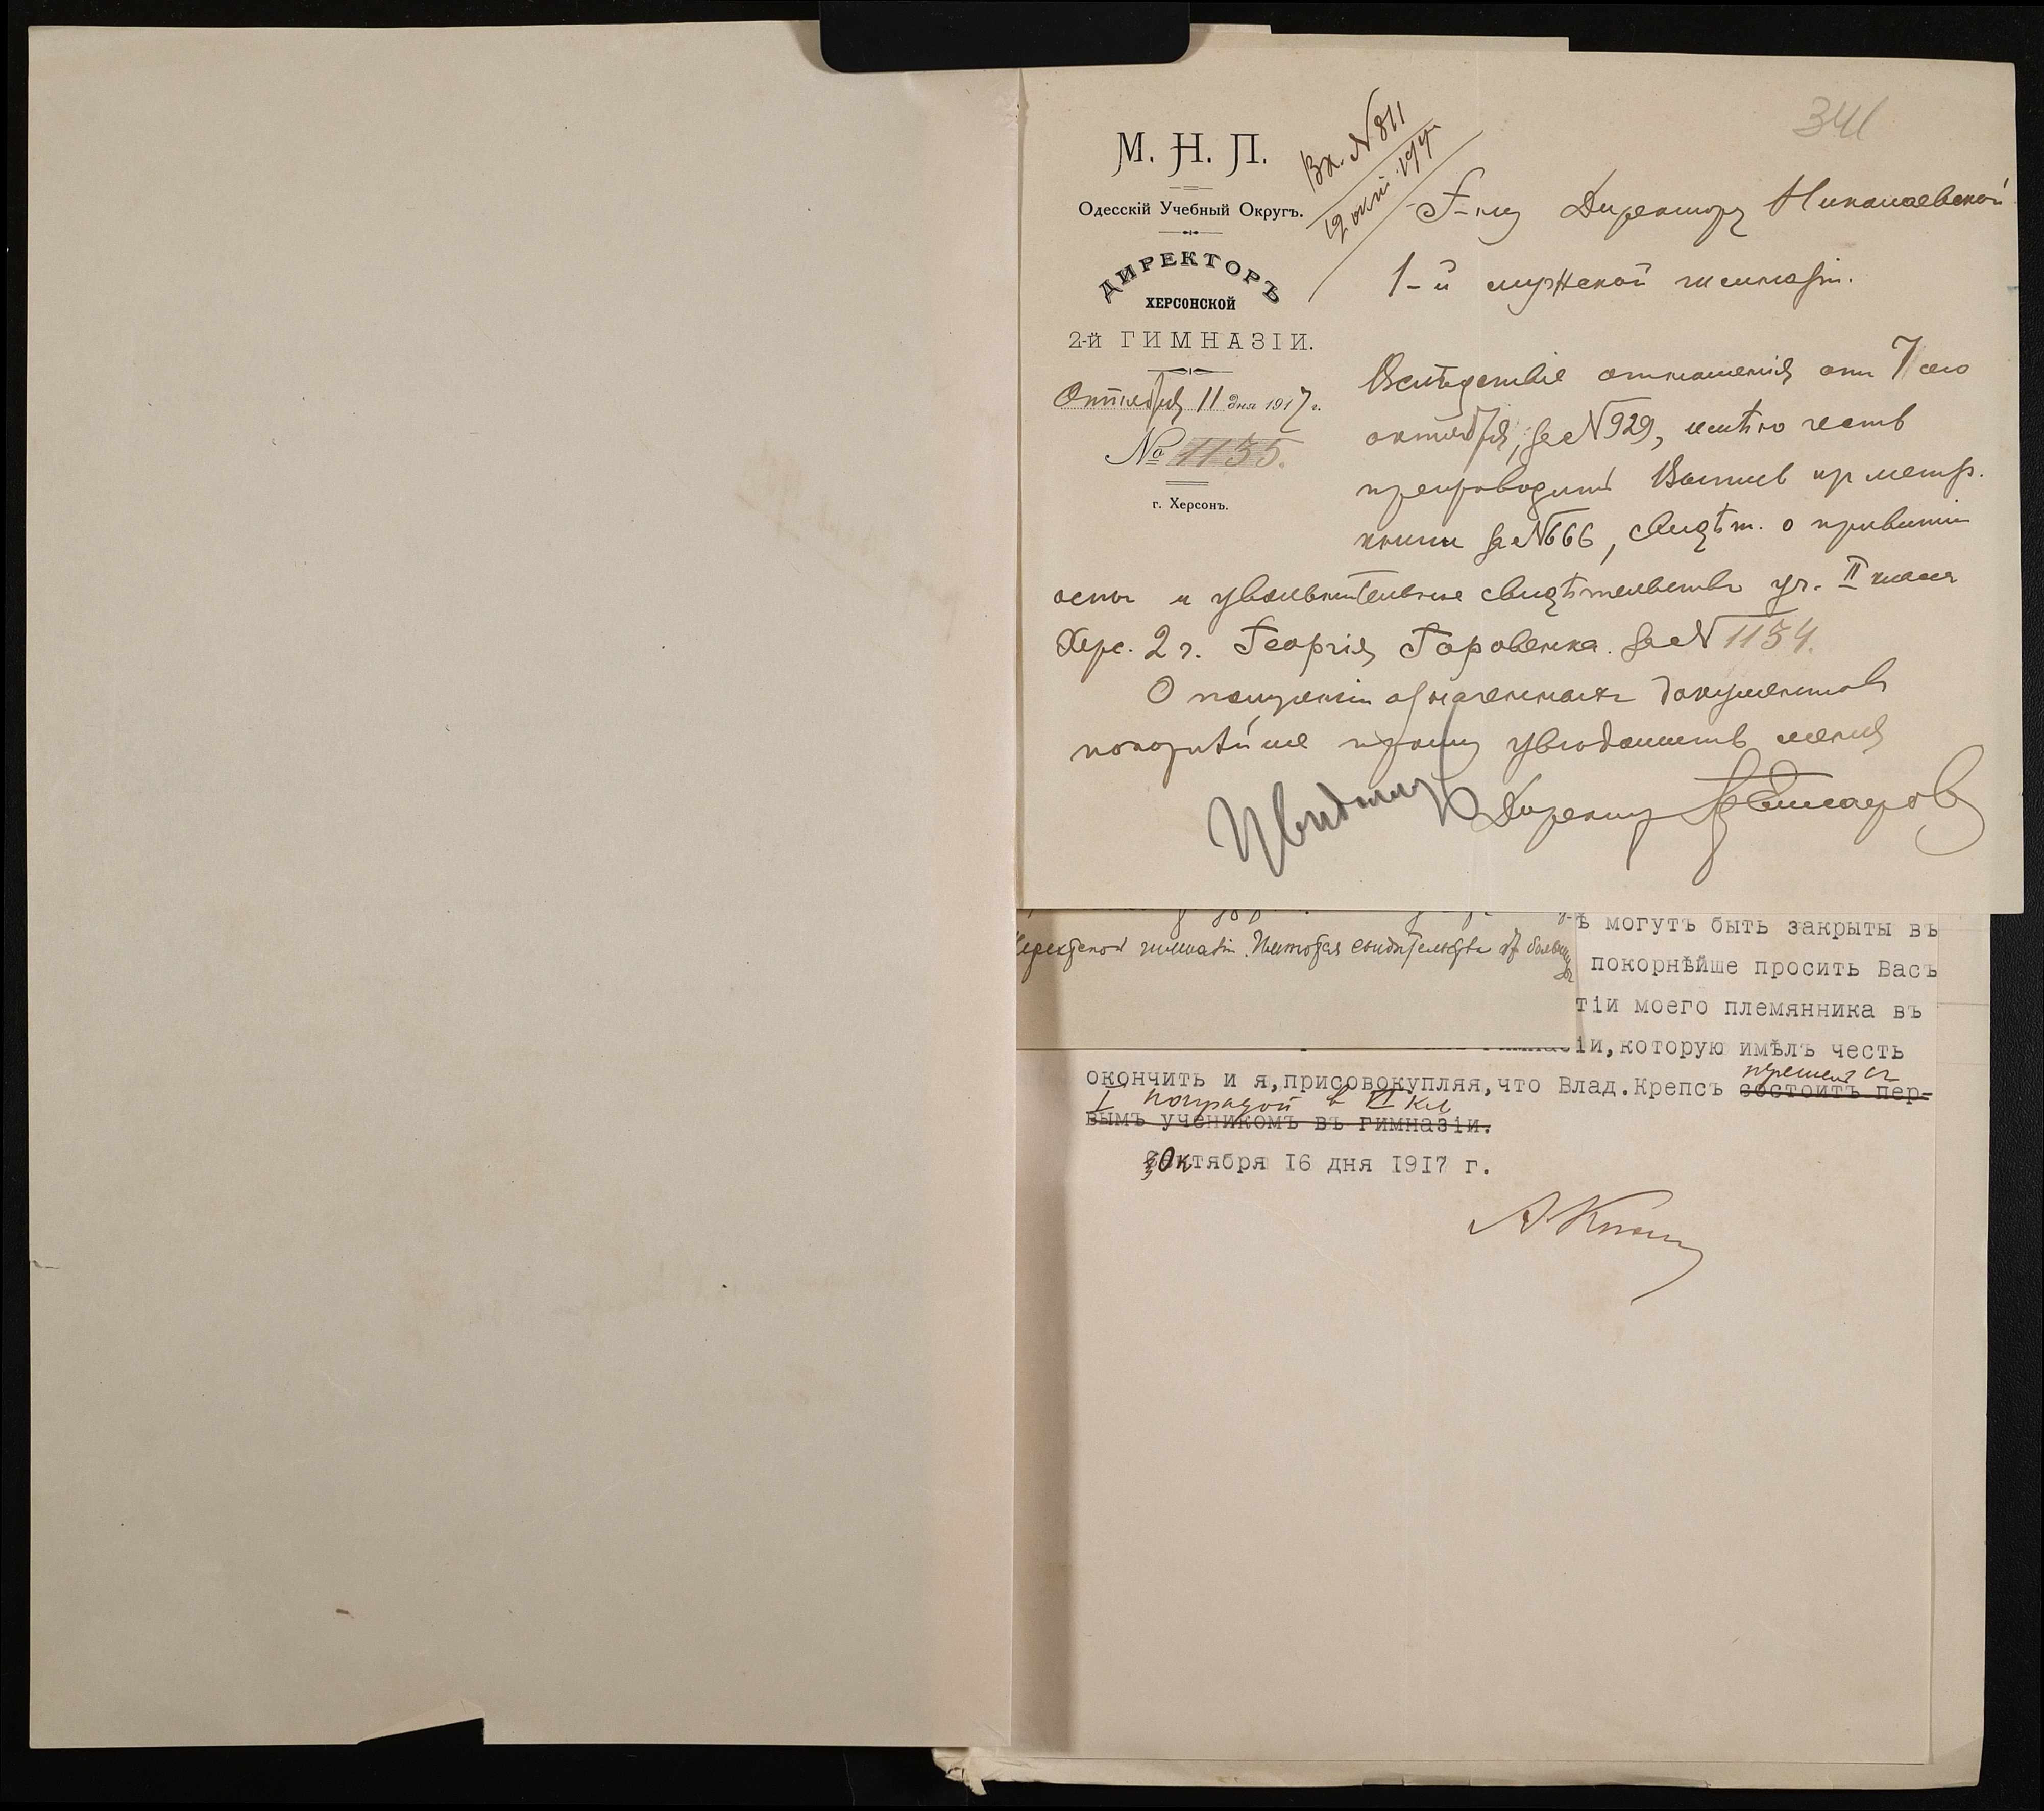 341
М. Н. П.
Одесскій Учебный Округъ.
ДИРЕКТОРЪ
ХЕРСОНСКОЙ
2-й ГИМНАЗІИ.
Октября 11 дня 1917 г.
№ 1155.
г. Херсонъ.
Вх. N 811
12 окт. 1917
Г-ну Директору Николаевской
1-й мужской гимназіи.
Вслѣдствіе отношенія от 7 сего
октября, за N 929, имѣю честь
препроводить Выпись из метр.
книги за N 666, свидѣт. о привитіи
оспы и увольнительное свидѣтельство уч. II класса
Херс. 2 г. Георгія Горовенка за N 1154.
О полученіи означенныхъ документовъ
покорнѣйше прошу увѣдомить меня
Увѣдомл
Директор
гимназіи. свидѣтельство
ѣ могутъ быть закрыты въ
покорнѣйше просить Васъ
тіи моего племянника въ
гимназіи,которую имѣлъ честь
окончить и я,присовокупляя,что Влад.Крепсъ состоитъ пер-
перешел съ
I наградой в VI кл
вымъ ученикомъ въ гимназіи.
Октября 16 дня 1917 г.